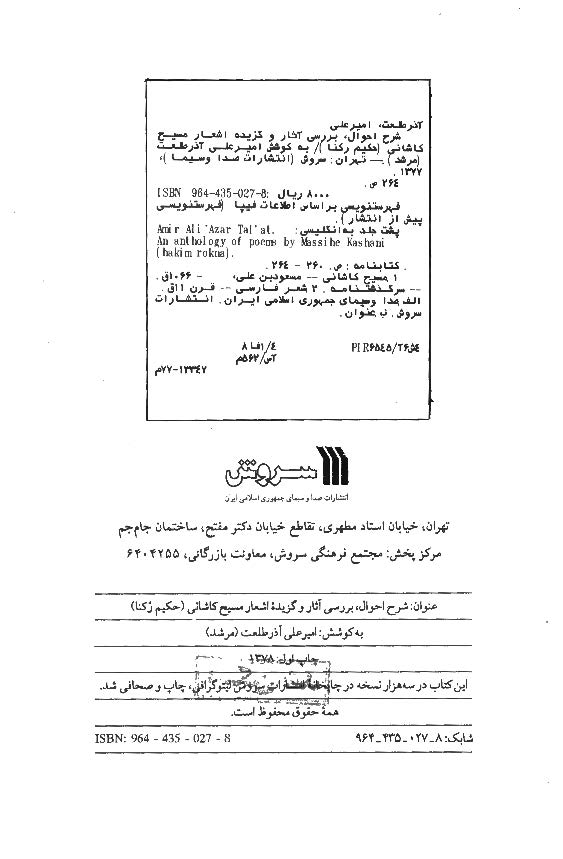 آذرطلعت، امیرعلی
شرح احوال، بررسی آثار و گزیده اشعار مسیح
کاشانی (حکیم رکنا)/ به کوشش امیرعلی آذرطلعت
(مرشد). — تهران: سروش (انتشارات صدا وسیما)،
۱۳۷۷.
۲۶۴ ص.
ISBN 964-435-027-8: ۸۰۰۰ ریال
فهرستنویسی براساس اطلاعات فیپا (فهرستنویسی
پیش از انتشار).
پشت جلد به انگلیسی: Amir Ali 'Azar Tal'at.
An anthology of poems by Massihe Kashani
(hakim rokna).
کتابنامه: ص. ۲۶۰ - ۲۶۴.
۱. مسیح کاشانی — مسعودبن علی، - ۱۰۶۶ق.
-- سرگذشتنامه. ۲. شعر فارسی -- قرن ۱۱ق.
الف. صدا وسیمای جمهوری اسلامی ایران. انتشارات
سروش. ب. عنوان.
۸فا۱/۴ PIR۶۵۴۵/آ۴ش
م۵۶۲/آس
م۷۷-۱۳۳۴۷
سروش
انتشارات صدا و سیمای جمهوری اسلامی ایران
تهران، خیابان استاد مطهری، تقاطع خیابان دکتر مفتح، ساختمان جام‌جم
مرکز پخش: مجتمع فرهنگی سروش، معاونت بازرگانی، ۶۴۰۴۲۵۵
عنوان: شرح احوال، بررسی آثار و گزیدهٔ اشعار مسیح کاشانی (حکیم رُکنا)
به کوشش: امیرعلی آذرطلعت (مرشد)
چاپ اول: ۱۳۷۸
این کتاب در سه‌هزار نسخه در چاپخانهٔ انتشارات سروش لیتوگرافی، چاپ و صحافی شد.
همهٔ حقوق محفوظ است.
شابک: ۸ـ۰۲۷ـ۴۳۵ـ۹۶۴ ISBN: 964 - 435 - 027 - 8